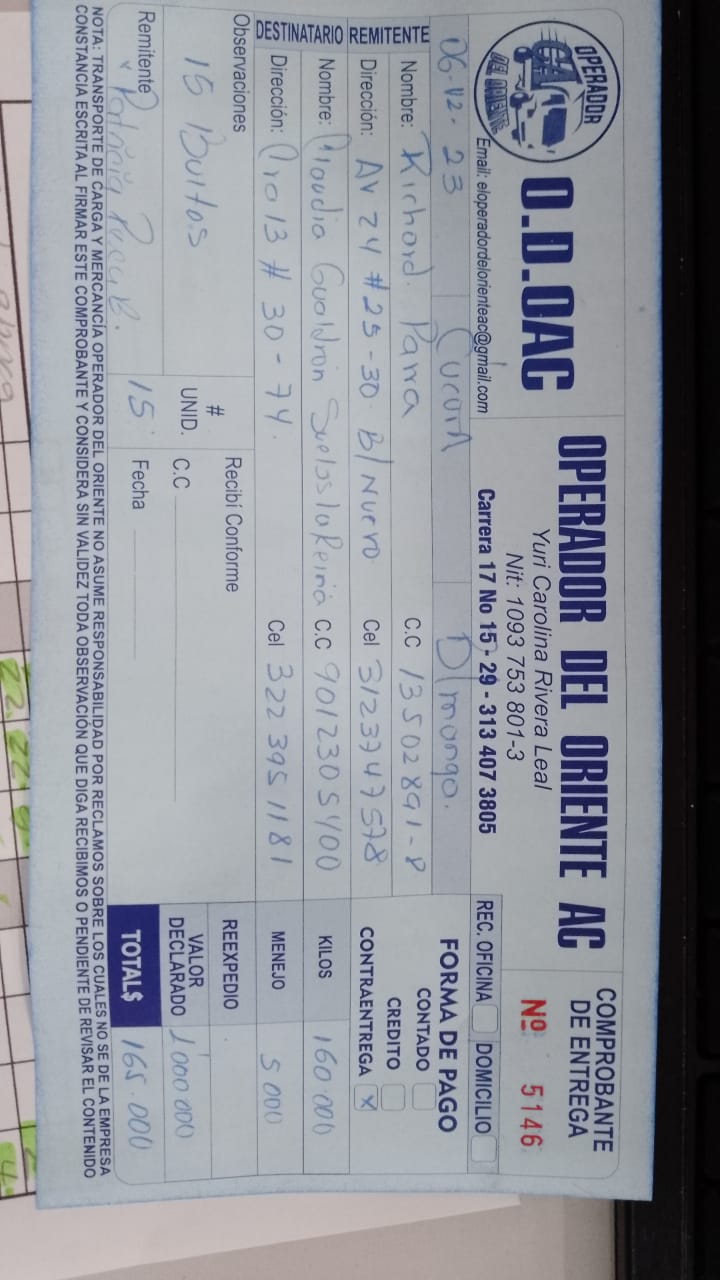 OPERADOR
DEL ORIENTE
O.D.OAC
OPERADOR DEL ORIENTE AC
Yuri Carolina Rivera Leal
Nit: 1093 753 801-3
Email: eloperadordelorienteac@gmail.com
Carrera 17 No 15 - 29 - 313 407 3805
COMPROBANTE
DE ENTREGA
Nº 5146
REC. OFICINA DOMICILIO
06-12-23 Cucuta D/mongo.
FORMA DE PAGO
CONTADO
CREDITO
CONTRAENTREGA X
REMITENTE
Nombre: Richard. Parra C.C 13502891-8
Dirección: Av 24 #25-30 B/Nuevo Cel 3123747578
DESTINATARIO
Nombre: Claudia Gualdron Suelas la Reina C.C 9012305400
Dirección: Cra 13 # 30-74. Cel 322 395 1181
KILOS 160.000
MENEJO 5000
REEXPEDIO
VALOR
DECLARADO 1'000000
TOTAL$ 165.000
Observaciones
15 Bultos
#
UNID.
15
Recibí Conforme
C.C
Fecha
Remitente
NOTA: TRANSPORTE DE CARGA Y MERCANCÍA OPERADOR DEL ORIENTE NO ASUME RESPONSABILIDAD POR RECLAMOS SOBRE LOS CUALES NO SE DE LA EMPRESA
CONSTANCIA ESCRITA AL FIRMAR ESTE COMPROBANTE Y CONSIDERA SIN VALIDEZ TODA OBSERVACIÓN QUE DIGA RECIBIMOS O PENDIENTE DE REVISAR EL CONTENIDO